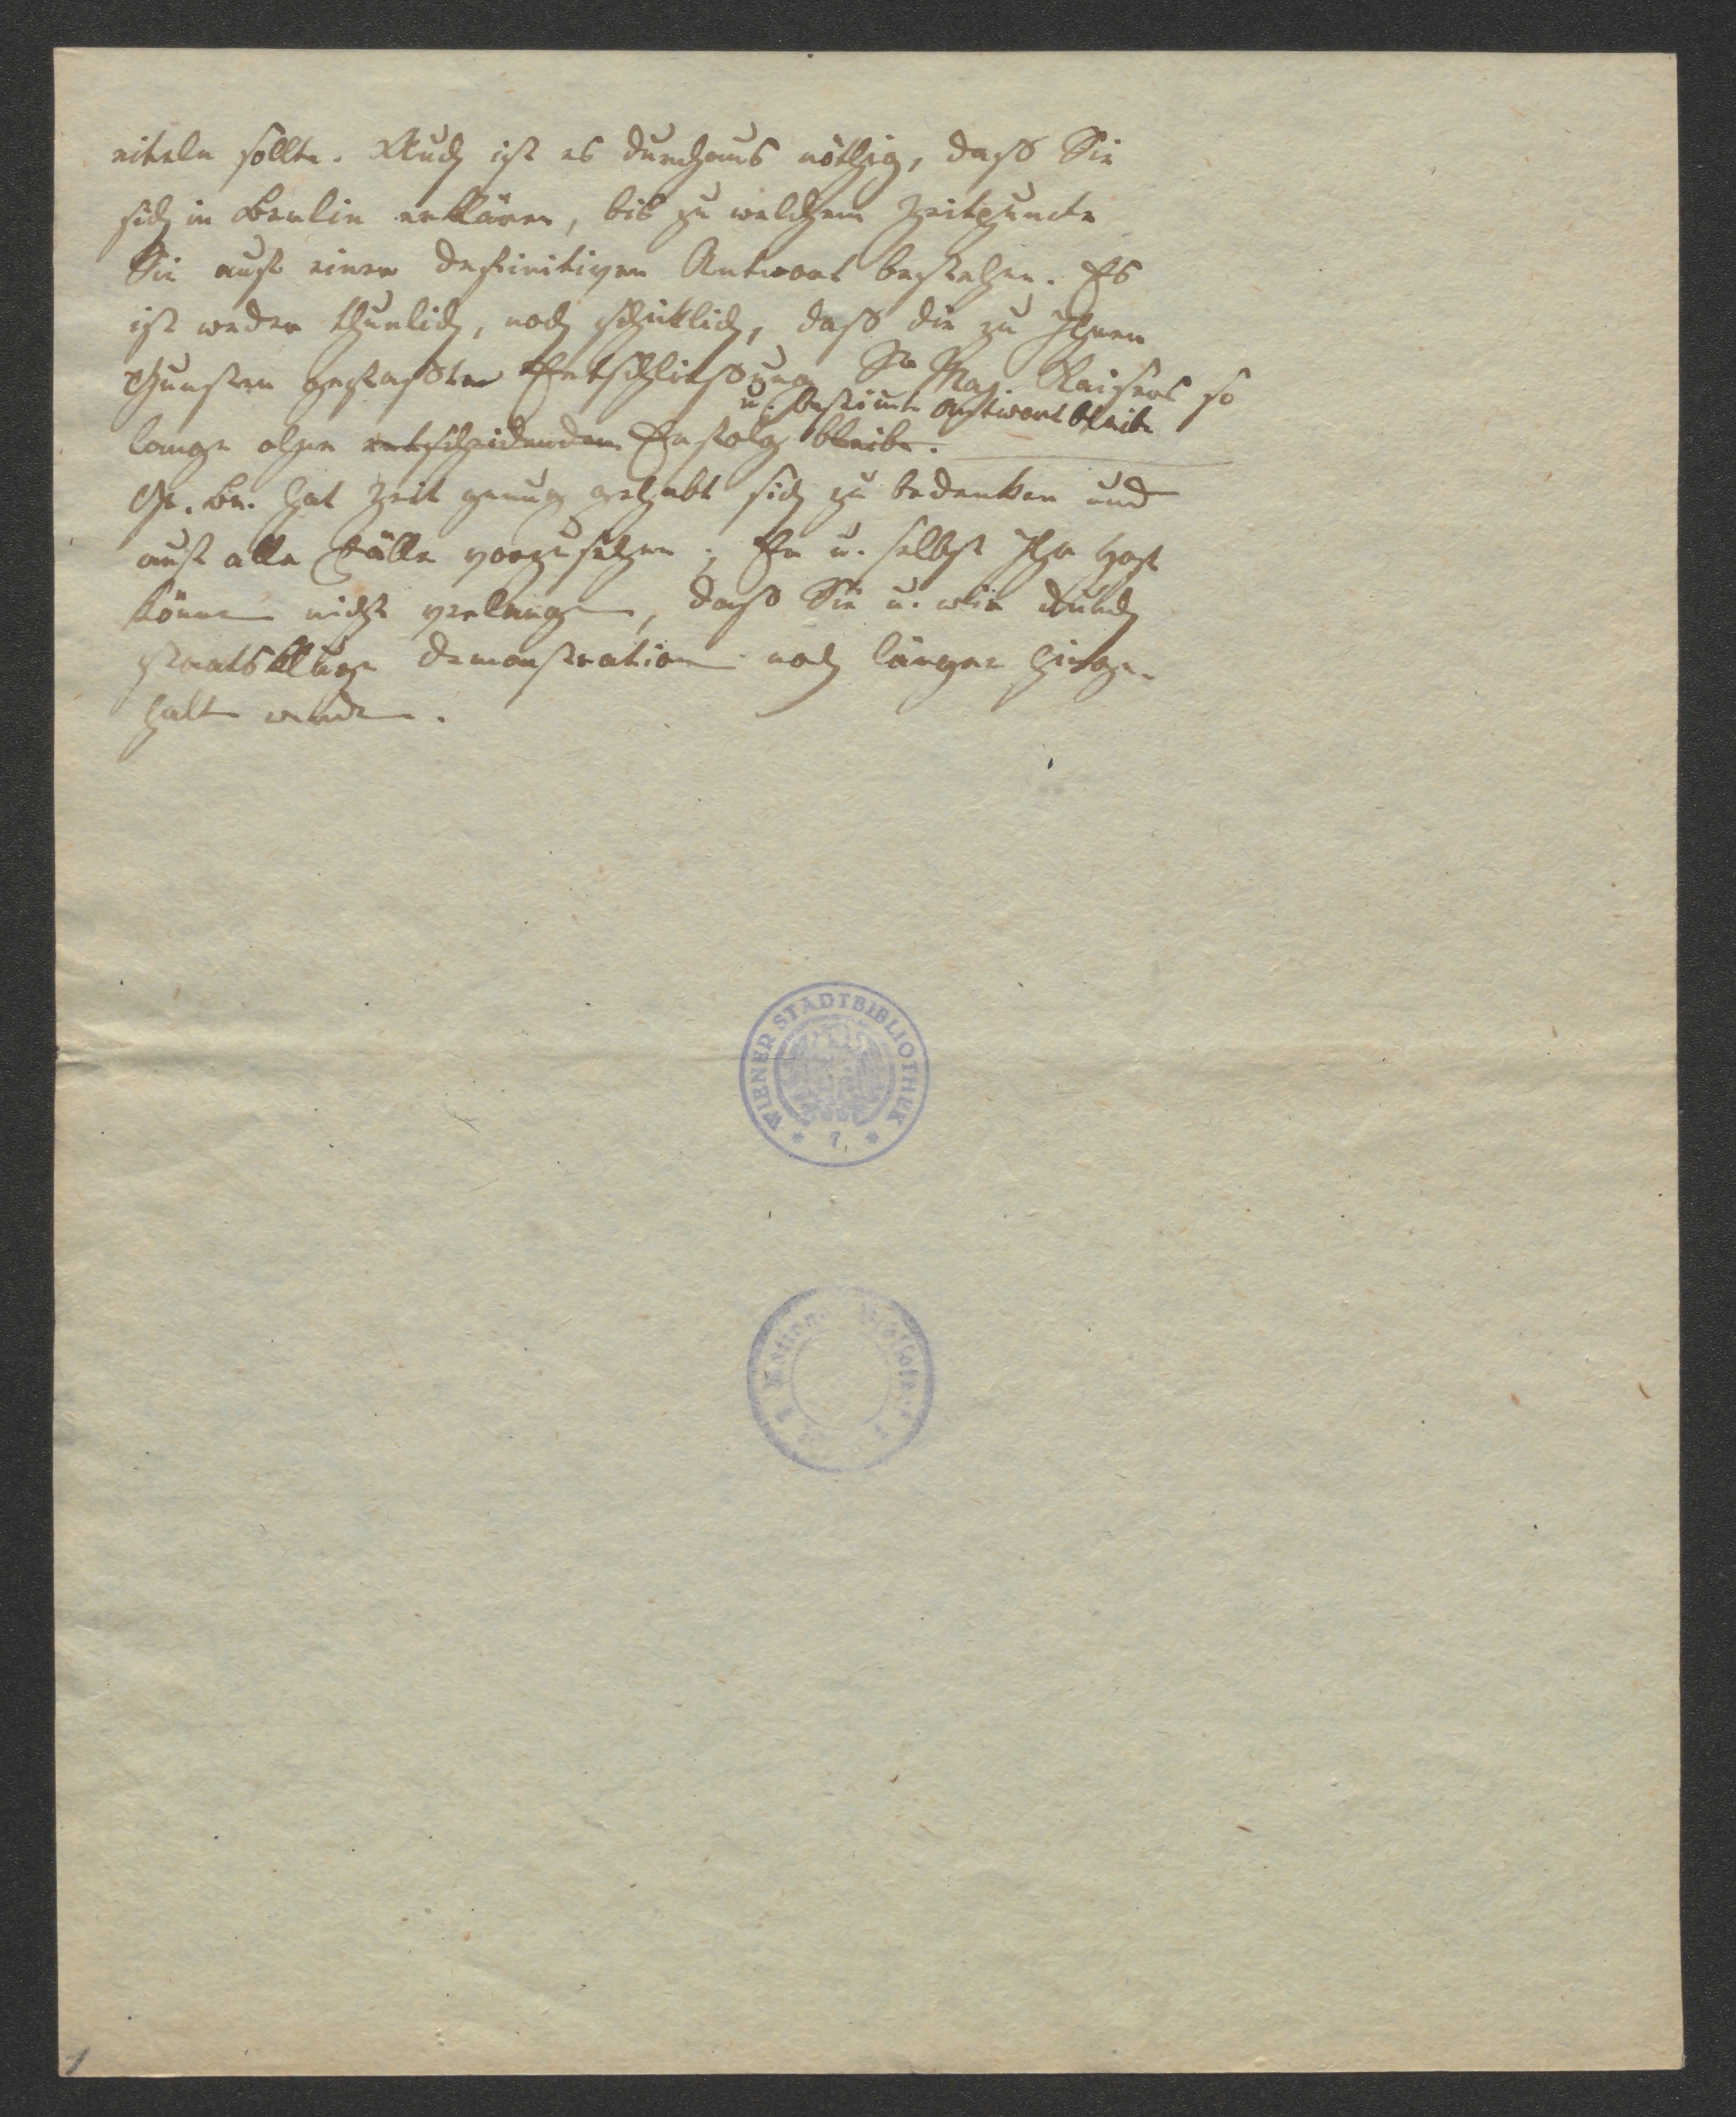 eiteln sollte. Auch ist es durchaus nöthig, daß Sie
sich in Berlin erklären, bis zu welchem Zeitpuncte
Sie auf einer definitiven Antwort bestehen. Es
ist weder thunlich, noch schiklich, daß die zu Ihren
Gunsten gefaßte Entschließung Sr Maj. Kaisers so
u. bestimte Antwort bleibe
lange ohne entscheidenden Erfolg bleibe.
Gr. Br. hat Zeit genug gehabt sich zu bedenken und
auf alle Fälle vorzusehen; Er u. selbst Ihr Hof
können nicht verlangen, daß Sie u. wir durch
staatskluge Demonstrationen noch länger hinge-
halten werden.
WIENER STADTBIBLIOTHEK
* 7. *
1